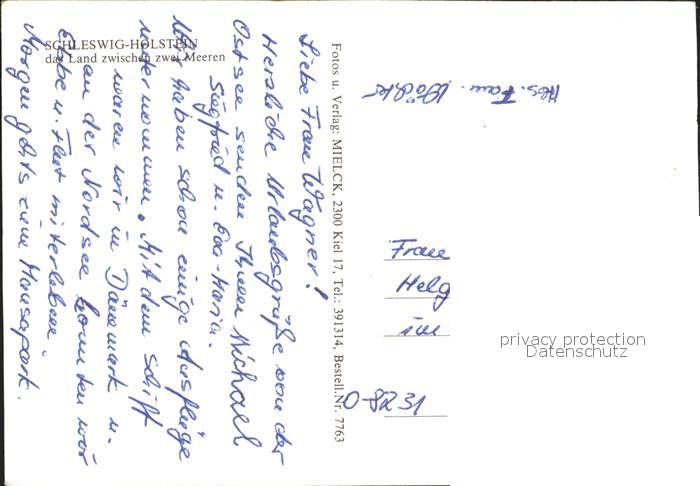 SCHLESWIG-HOLSTEIN
das Land zwischen zwei Meeren
Liebe Frau Wagner!
Herzliche Urlaubsgrüße von der
Ostsee senden Ihnen Michael
Siegfried u. Eva-Maria.
Wir haben schon einige Ausflüge
unternommen. Mit dem Schiff
waren wir in Dänemark u.
an der Nordsee konnten wir
Ebbe u. Flut miterleben.
Morgen gehts zum Hansapark.
Fotos u. Verlag: MIELCK, 2300 Kiel 17, Tel.: 391314, Bestell.Nr. 7763
Abs. Fam.
Frau
Helg
im
O-8231
privacy protection
Datenschutz